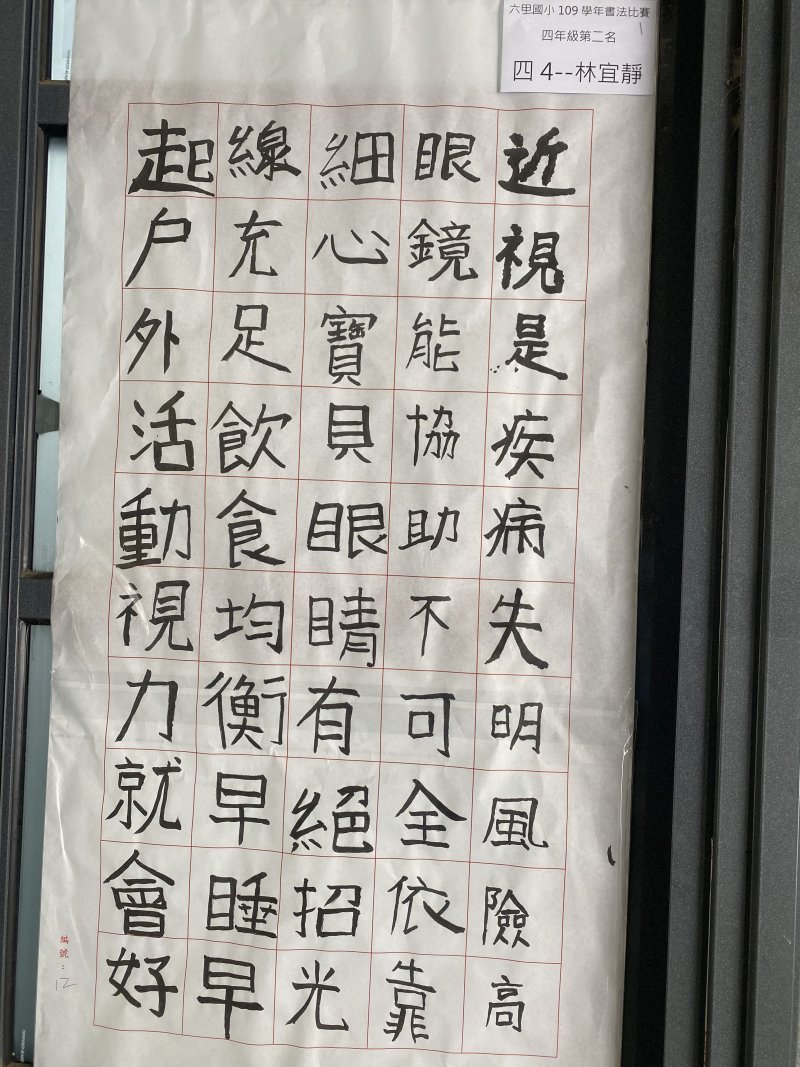 六甲國小 109 學年書法比賽
四年級第二名
四 4--林宜靜
近視是疾病失明風險高
眼鏡能協助不可全依靠
細心寶貝眼睛有絕招光
線充足飲食均衡早睡早
起戶外活動視力就會好
編號：12